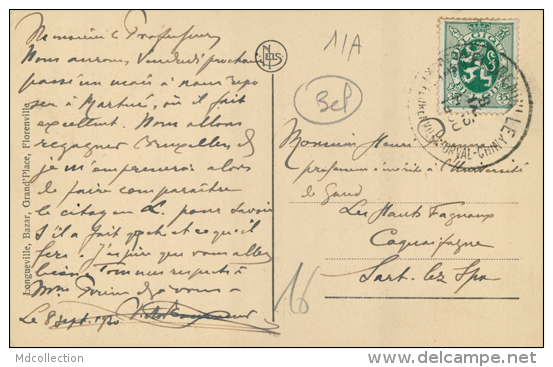 Monsieur le Professeur
Nous aurons, Vendredi prochain
passé un mois à nous repo
ser à Martué, où il fait
excellent. Nous allons
regagner Bruxelles et
je m'empresserai alors
de faire comparaître
le citoyen L. pour savoir
s'il a fait et ce qu'il
fera. J'espère que vous allez
bien. Tous nos respects à
Mme et à vous
Le 8 sept. 1930
Longueville, Bazar, Grand'Place, Florenville
NELS
11A
Bel
BELGIQUE
FLORENVILLE
ORVAL-CHINY
Monsieur Henri
professeur émérite à l'Université
de Gand
Les Hauts Fagnoux
Coquaifagne
Sart-lez Spa
16
Mdcollection
delcampe.net